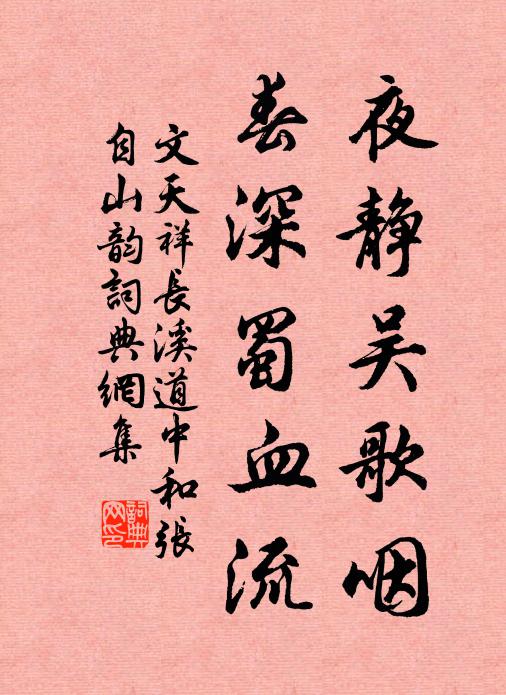 夜静吴歌咽
春深蜀血流
文天祥長溪道中和張
自山韵詞典網集
詞典
网印